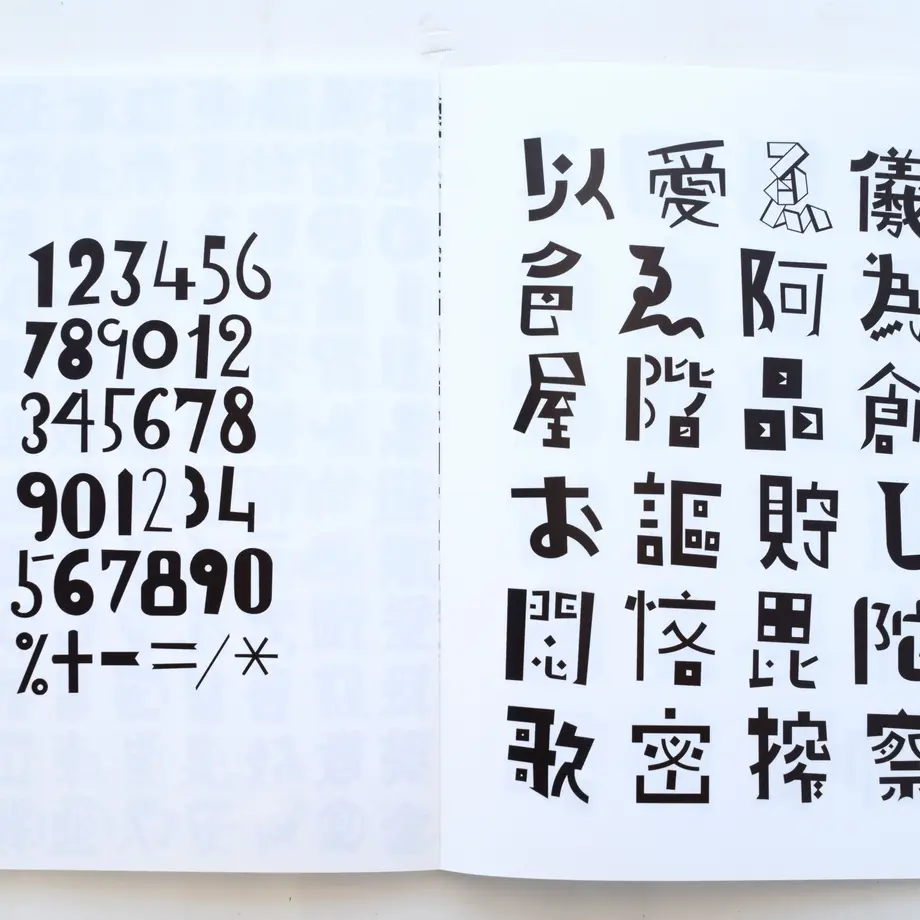 123456
789012
345678
901234
567890
%+-=/*
以愛ゑ儀
色ゑ阿為
屋階品創
お謳貯し
悶恪毘陀
歌密搾察